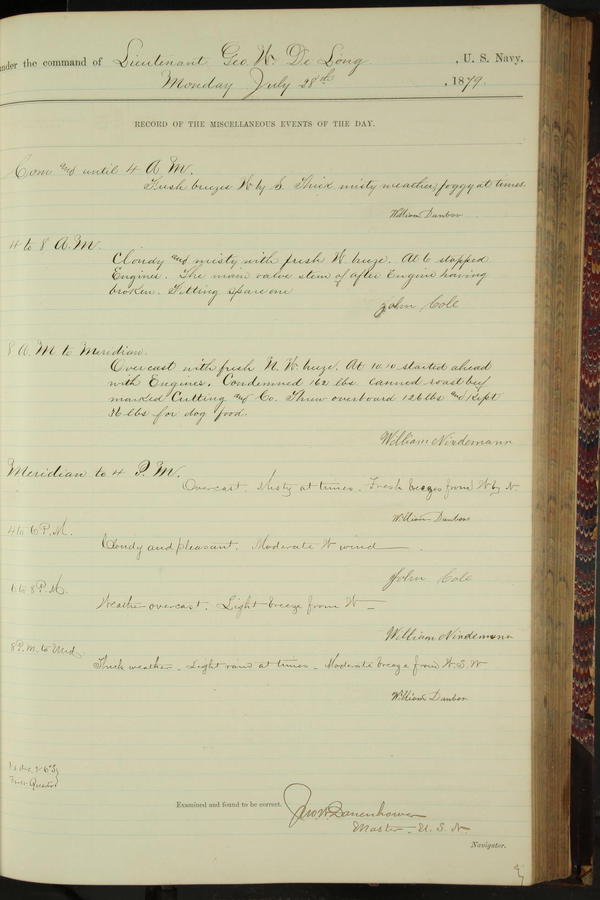 under the command of Lieutenant Geo. W. De Long, U. S. Navy,
Monday July 28th, 1879.
RECORD OF THE MISCELLANEOUS EVENTS OF THE DAY.
Com and until 4 A. M.
Fresh breezes W by S. Thick misty weather, foggy at times.
William Dunbar
4 to 8 A. M.
Cloudy and misty with fresh W. breeze. At 6 stopped
Engines. The main valve stem of after Engine having
broken. Fitting spare one
John Cole
8 A. M to Meridian.
Overcast with fresh N. W. breeze. At 10.10 started ahead
with Engines. Condemned 162 lbs. canned roast beef
marked Cutting and Co. Threw overboard 126 lbs and Kept
36 lbs for dog food.
William Nindemann
Meridian to 4 P. M.
Overcast. Misty at times. Fresh breezes from W by N.
William Dunbar
4 to 6 P. M.
Cloudy and pleasant. Moderate W wind
John Cole
6 to 8 P. M.
Weather overcast. Light breeze from W
William Nindemann
8 P. M. to Mid.
Thick weather. Light rain at times. Moderate breeze from W. S. W
William Dunbar
Examined and found to be correct.
Jno. W. Danenhower
Master U. S. N.
Navigator.